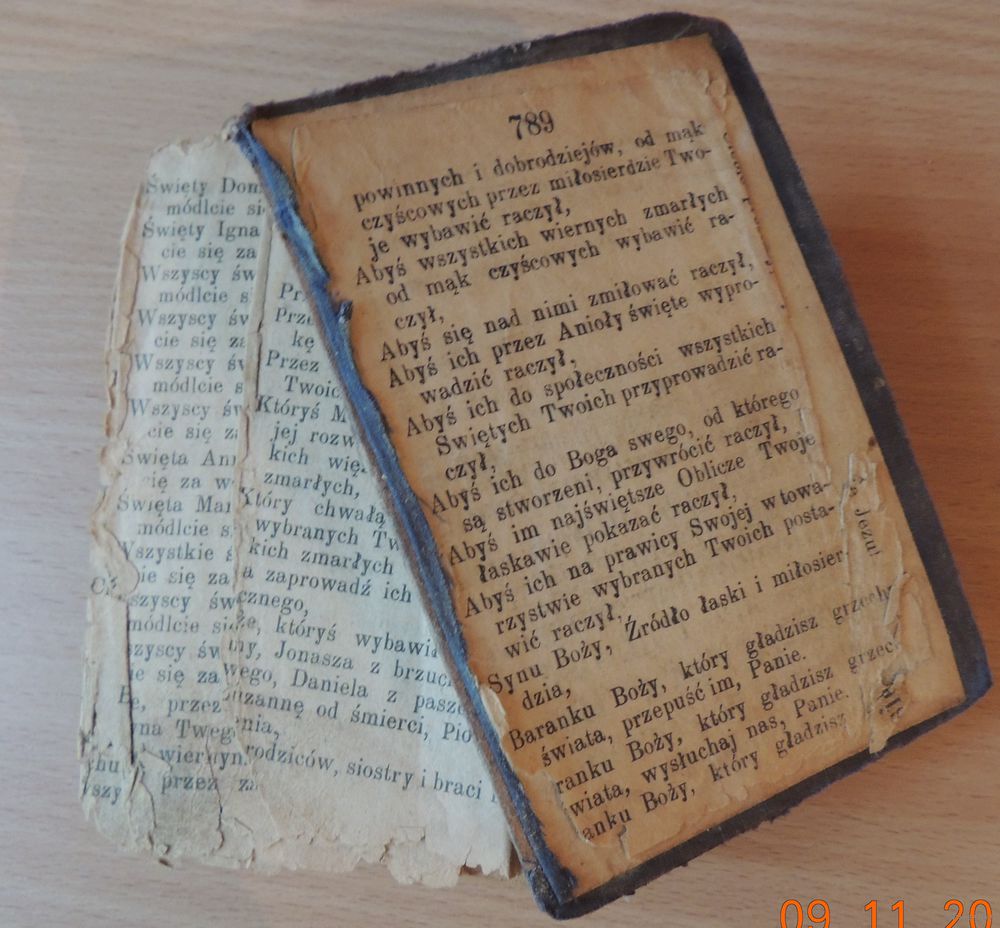 789
powinnych i dobrodziejów, od mąk
czyścowych przez miłosierdzie Two-
je wybawić raczył,
Abyś wszystkich wiernych zmarłych
od mąk czyścowych wybawić ra-
czył,
Abyś się nad nimi zmiłować raczył,
Abyś ich przez Anioły święte wypro-
wadzić raczył,
Abyś ich do społeczności wszystkich
Świętych Twoich przyprowadzić ra-
czył,
Abyś ich do Boga swego, od którego
są stworzeni, przywrócić raczył,
Abyś im najświętsze Oblicze Twoje
łaskawie pokazać raczył,
Abyś ich na prawicy Swojej w towa-
rzystwie wybranych Twoich posta-
wić raczył,
Synu Boży, Źródło łaski i miłosier-
dzia,
Baranku Boży, który gładzisz grzechy
świata, przepuść im, Panie.
ranku Boży, który gładzisz grzec
wiata, wysłuchaj nas, Panie.
anku Boży, który gładzisz
Jezu!
Święty Dom
módlcie si
Święty Igna
cie się za
Wszyscy św
módlcie s
Wszyscy św
cie się za
Wszyscy św
módlcie s
Wszyscy św
cie się za
Święta An
cie się za w
Święta Mar
módlcie s
Wszystkie ś
cie się za
szyscy św
módlcie się
zyscy św
ie się za
przez
na Tweg
wiernyn
przez
Prz
Prze
kę
Przez
Twoic
Któryś M
jej rozw
kich wię
zmarłych,
Który chwałą
wybranych Tw
kich zmarłych
a zaprowadź ich
cznego,
że, któryś wybawi
ny, Jonasza z brzuc
wego, Daniela z pasz
uzannę od śmierci, Pio
nia,
rodziców, siostry i braci
09 11 20